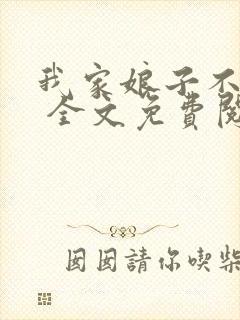 我家娘子不
全文免費閱
囡囡請你喫柴